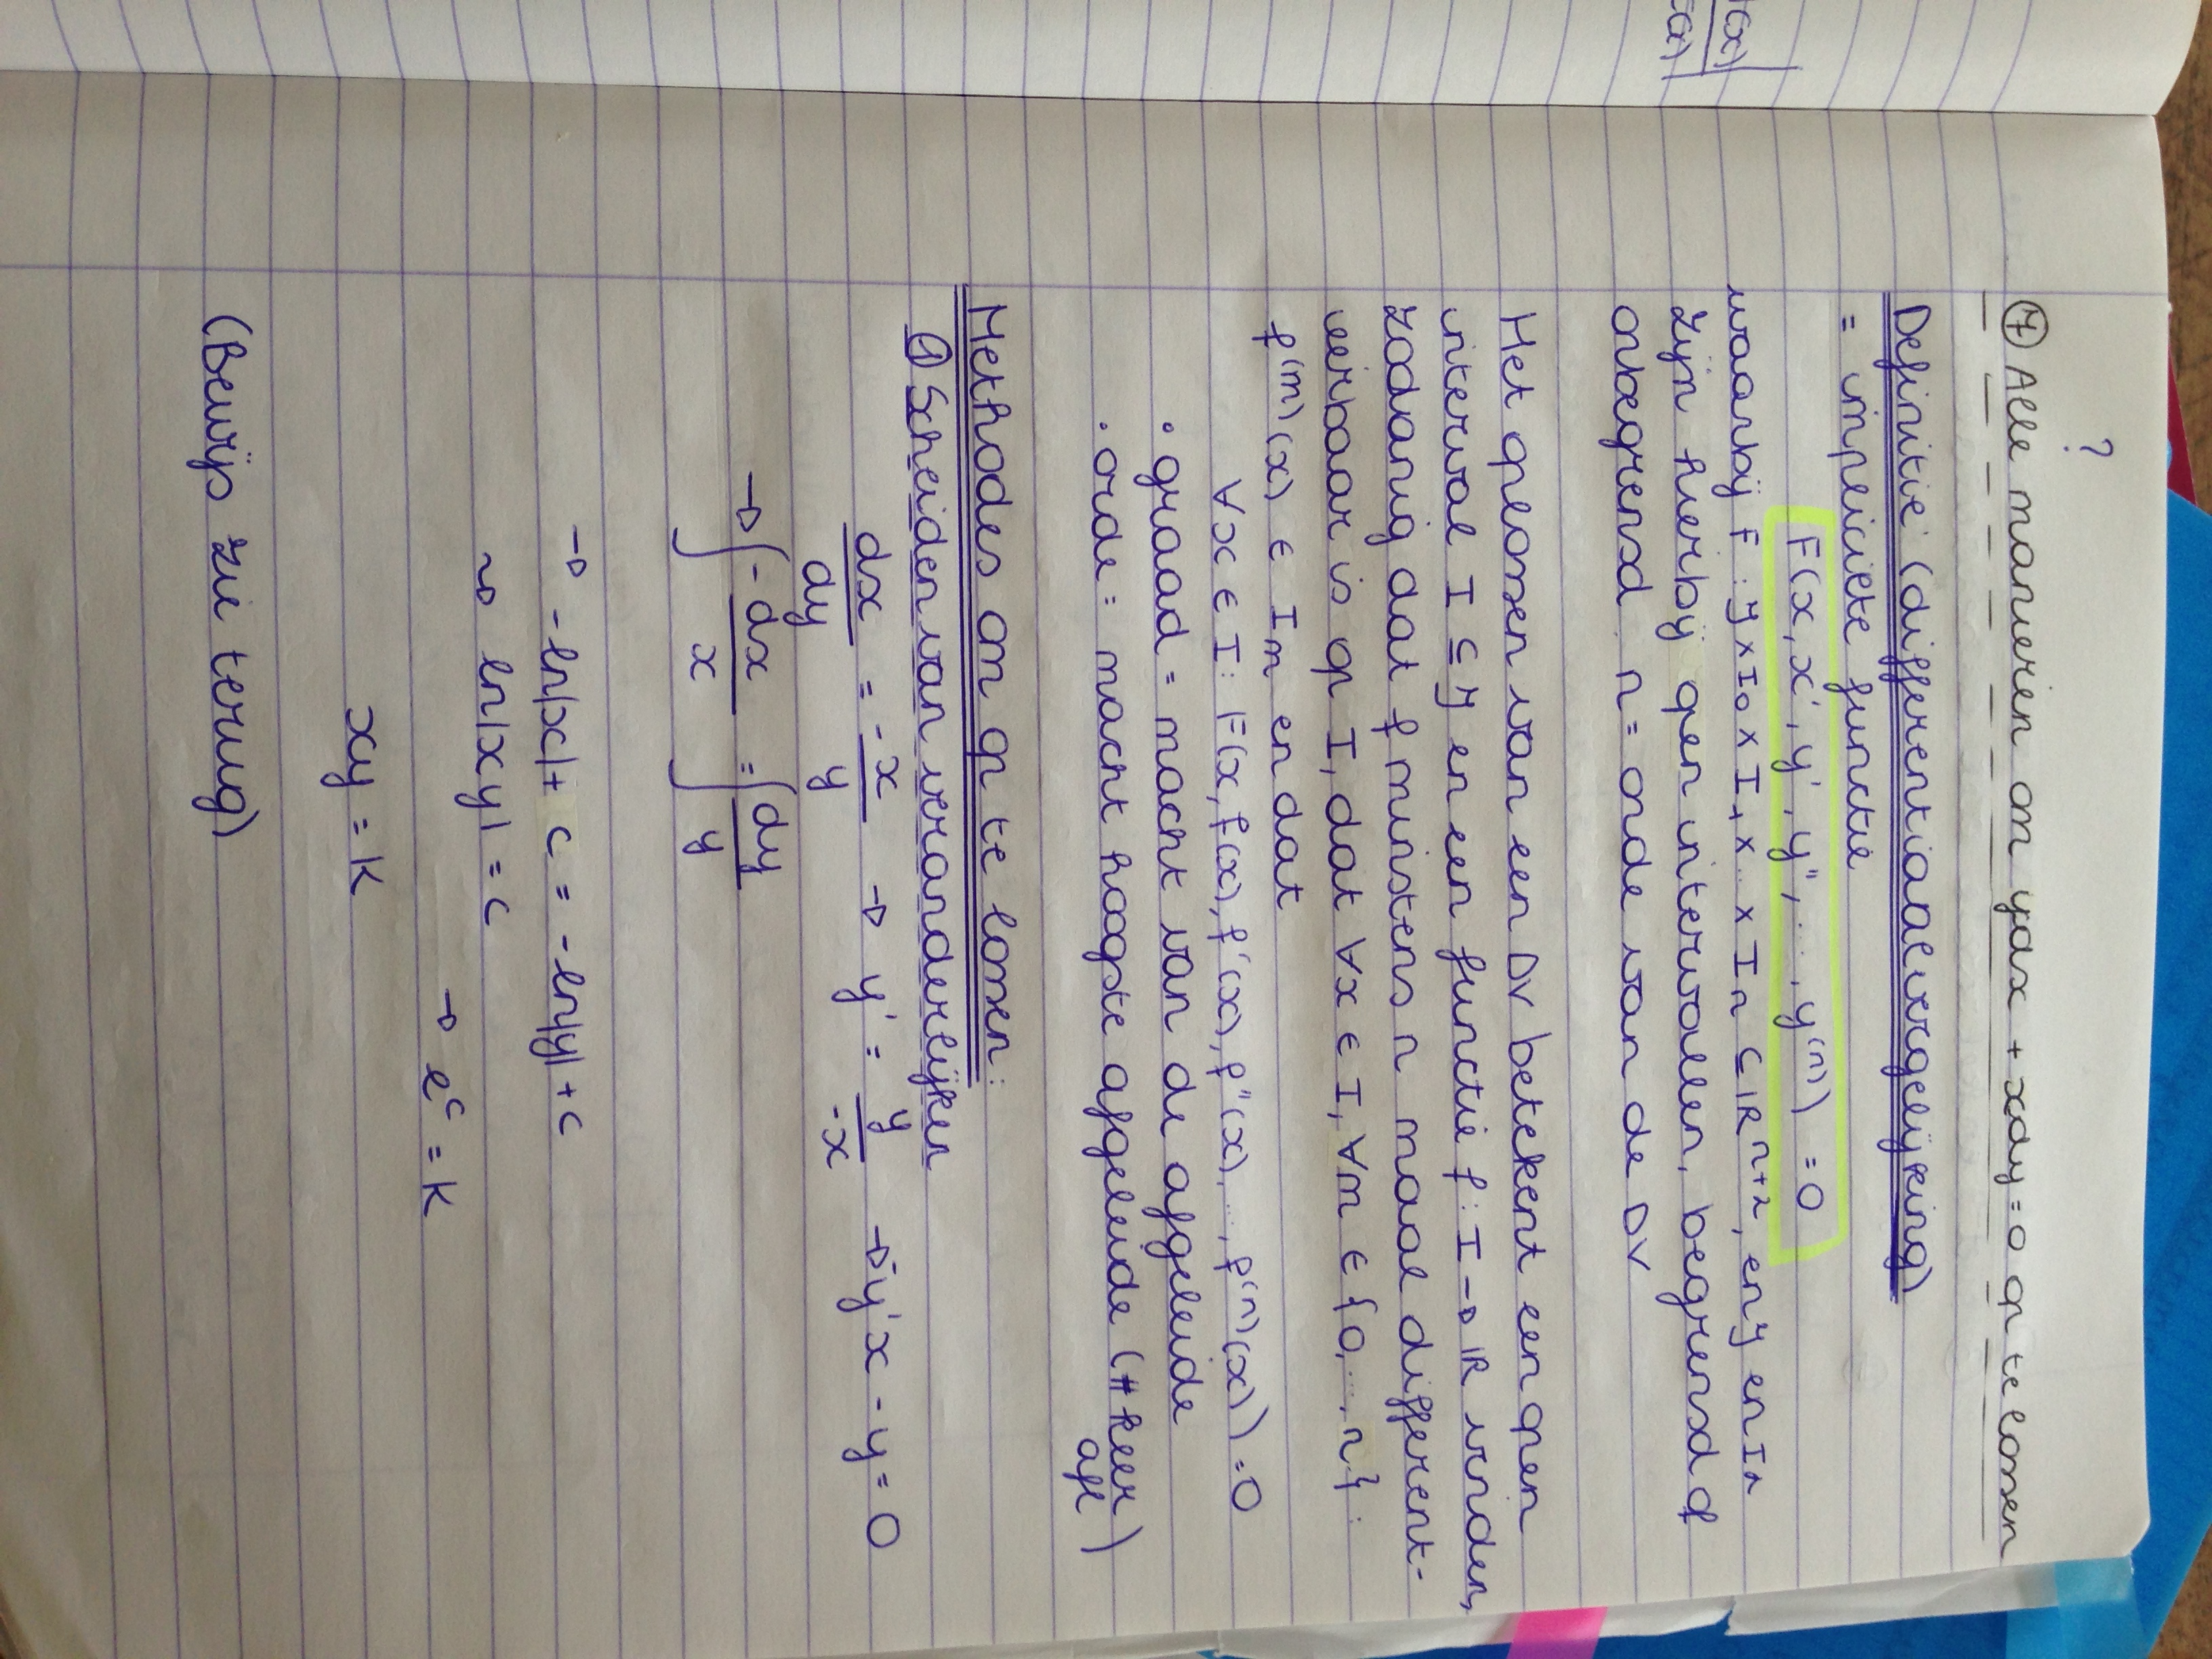 ?
⑦ Alle manieren om ydx + xdy = 0 op te lossen
Definitie: (differentiaalvergelijking)
= impliciete functie
F(x, x', y', y'', ..., y⁽ⁿ⁾) = 0
waarbij F : J x I₀ x I₁ x .. x Iₙ ⊆ ℝⁿ⁺², en J en Iₙ
zijn hierbij open intervallen, begrensd of
onbegrensd. n = orde van de DV
Het oplossen van een DV betekent een open
interval I ⊆ J en een functie f : I → ℝ vinden,
zodanig dat f minstens n maal different-
ieerbaar is op I, dat ∀x ∈ I, ∀m ∈ {0, ..., n} :
f⁽ᵐ⁾(x) ∈ Iₘ en dat
∀x ∈ I: F(x, f(x), f'(x), f''(x), ..., f⁽ⁿ⁾(x)) = 0
• graad = macht van de afgeleide
• orde = macht hoogste afgeleide (# keer
afl)
Methodes om op te lossen:
① Scheiden van veranderlijken
dx/dy = -x/y → y' = y/-x → -y'x - y = 0
→ ∫ -dx/x = ∫ dy/y
→ -ln|x| + c = -ln|y| + c
→ ln|xy| = c
→ eᶜ = K
xy = K
(Bewijs zie terug)
(x)
(x)